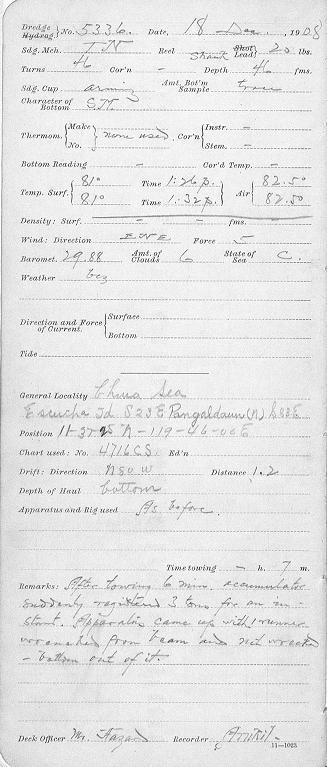 Dredge
Hydrog. } No. 5336. Date, 18 Dec., 1908
Sdg. Mch. TN Reel Strand Shot Lead } 20 lbs.
Turns 46 Cor'n - Depth 46 fms.
Sdg. Cup arming Amt. Bot'm Sample trace
Character of Bottom S.M.
Thermom. { Make No. } none used. Cor'n { Instr. - Stem. -
Bottom Reading - Cor'd Temp. -
Temp. Surf. { 81° Time 1:26 p. } Air { 82.5°
81° Time 1:32 p. 82.5°
Density: Surf. - - fms. -
Wind: Direction ENE Force 5
Baromet. 29.88 Amt. of Clouds 6 State of Sea C.
Weather bcz
Direction and Force of Current. { Surface
Bottom
Tide
General Locality China Sea
Escucha Id S23E Pangaldaun (N) S83E
Position 11-37-25 N-119-46-00E
Chart used: No. 4716 CS. Ed'n
Drift: Direction N80W Distance 1.2
Depth of Haul bottom
Apparatus and Rig used As before.
Time towing - h. 7 m.
Remarks: After towing 6 min. accumulator
suddenly registered 3 tons for an in-
stant. Apparatus came up with 1 runner
wrenched from beam and net wrecked
- bottom out of it.
Deck Officer Mr. Recorder
11-1023